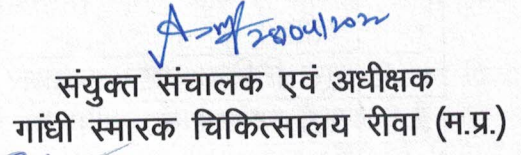 संयुक्त संचालक एवं अधीक्षक
गांधी स्मारक चिकित्सालय रीवा (म.प्र.)